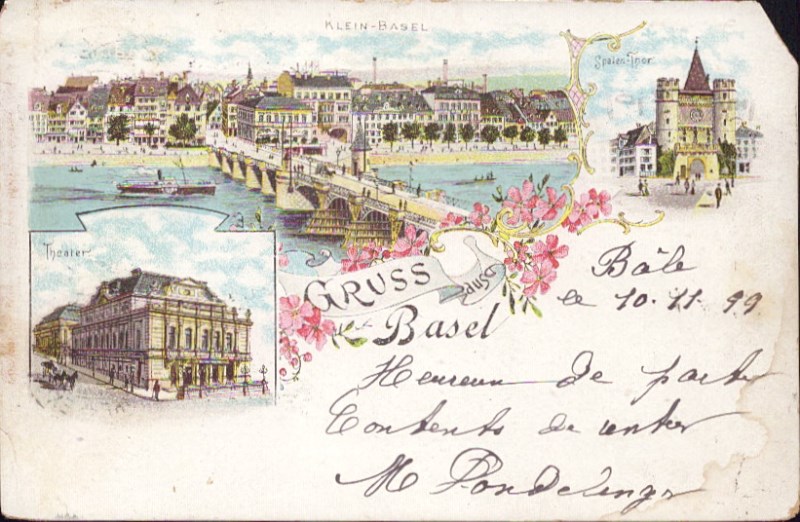 KLEIN-BASEL
Spalen-Thor
Theater
GRUSS aus
Basel
Bâle
le 10. 11. 99
Heureux de partir
Contents de
M